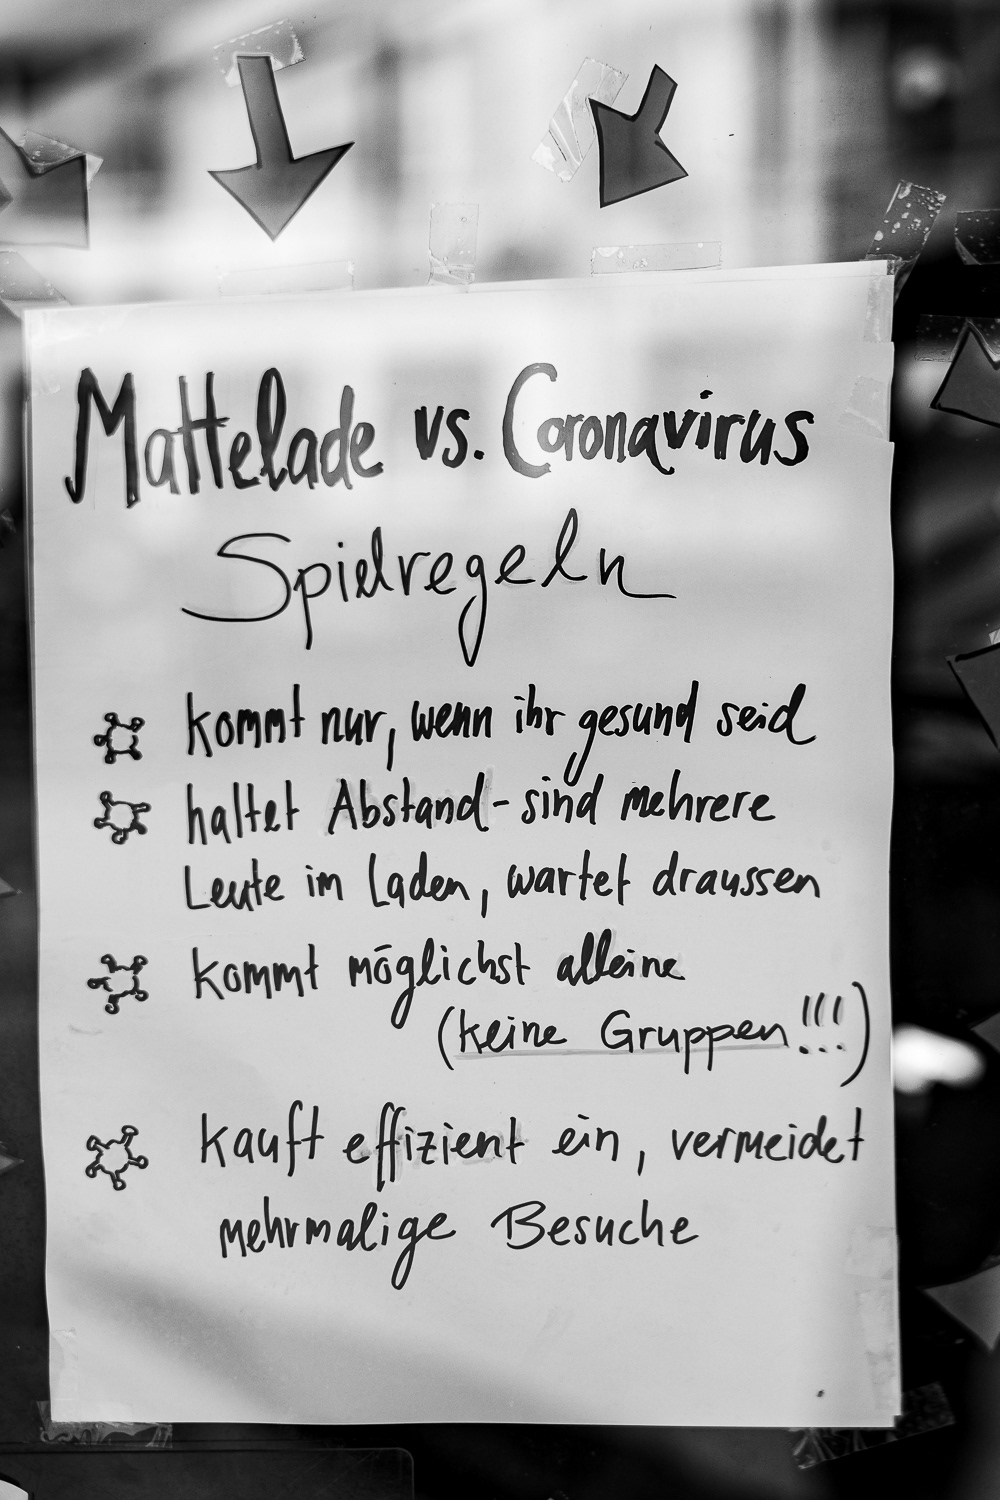 Mattelade vs. Coronavirus
Spielregeln
kommt nur, wenn ihr gesund seid
haltet Abstand - sind mehrere
Leute im Laden, wartet draussen
kommt möglichst alleine
(keine Gruppen!!!)
kauft effizient ein, vermeidet
mehrmalige Besuche